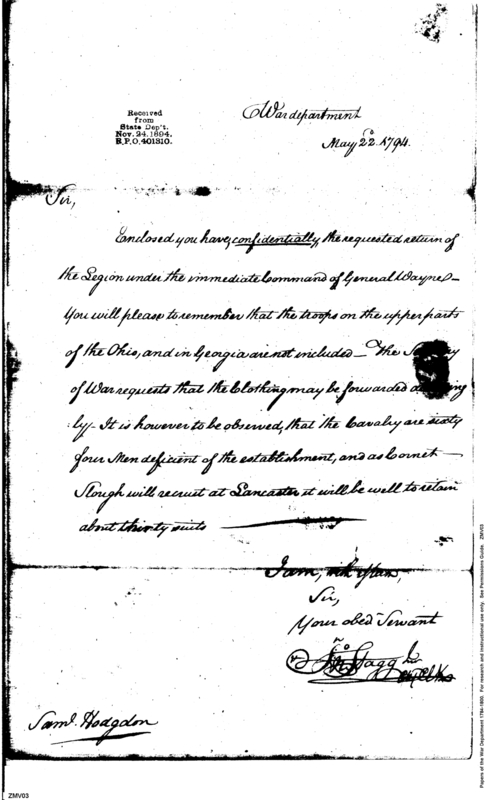 Received
from
State Dep't.
Nov. 24. 1894.
R.P.O. 401310.
War department
May 22. 1794.
Sir,
Enclosed you have, confidentially, the requested return of
the Legion under the immediate Command of General Wayne—
You will please to remember that the troops on the upper parts
of the Ohio, and in Georgia are not included— The
of War requests that the Clothing may be forwarded
ly— It is however to be observed, that the Cavalry are sixty
four Men deficient of the establishment, and as Cornet
Slough will recruit at Lancaster it will be well to retain
about thirty suits
I am, with esteem,
Sir,
Your obed. Servant
Jno Stagg Jr
Saml. Hodgdon
ZMV03
Papers of the War Department 1784-1800. For research and instructional use only. See Permissions Guide. ZMV03